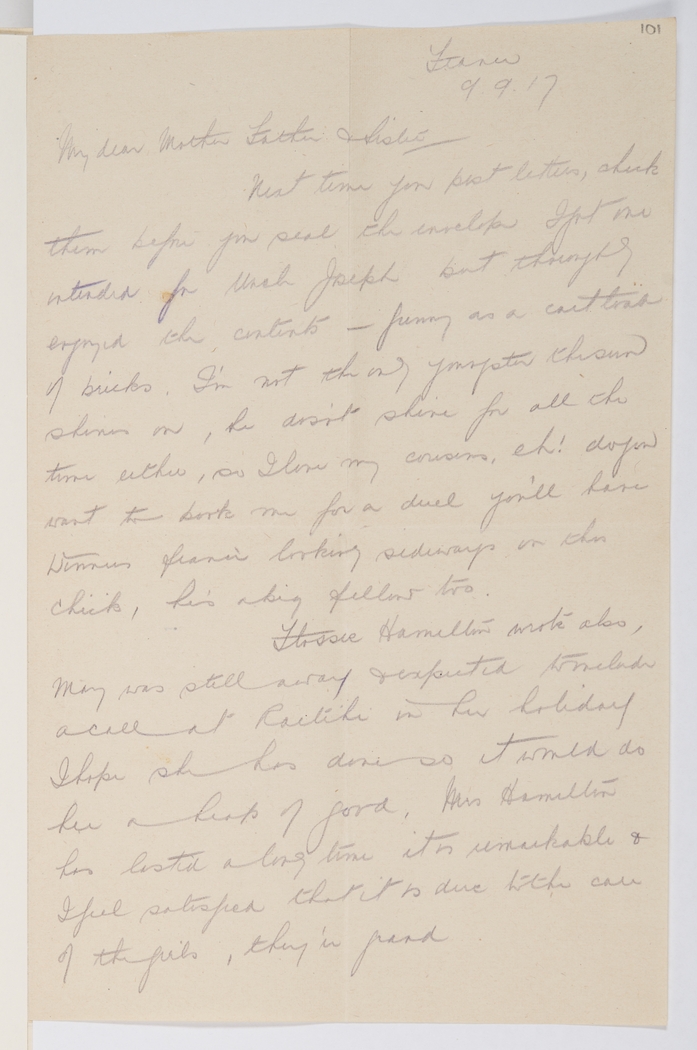 101
France
9.9.17
My dear Mother Father & Sister
Next time you post letters, check
them before you seal the envelope I got one
intended for Uncle Joseph but thoroughly
enjoyed the contents – funny as a cart load
of bricks. I'm not the only youngster the sun
shines on, he dosn't shine for all the
time either, so I love my cousins, eh! do you
want to book me for a duel you'll have
francie looking sideways on this
chick, he's a big fellow too.
Flossie Hamilton wrote also,
May was still away & expected to include
a call at Raetihi in her holiday
I hope she has done so it would do
her a heap of good. Mrs Hamilton
has lasted a long time it is remarkable &
I feel satisfied that it is due to the care
of the girls, they're grand